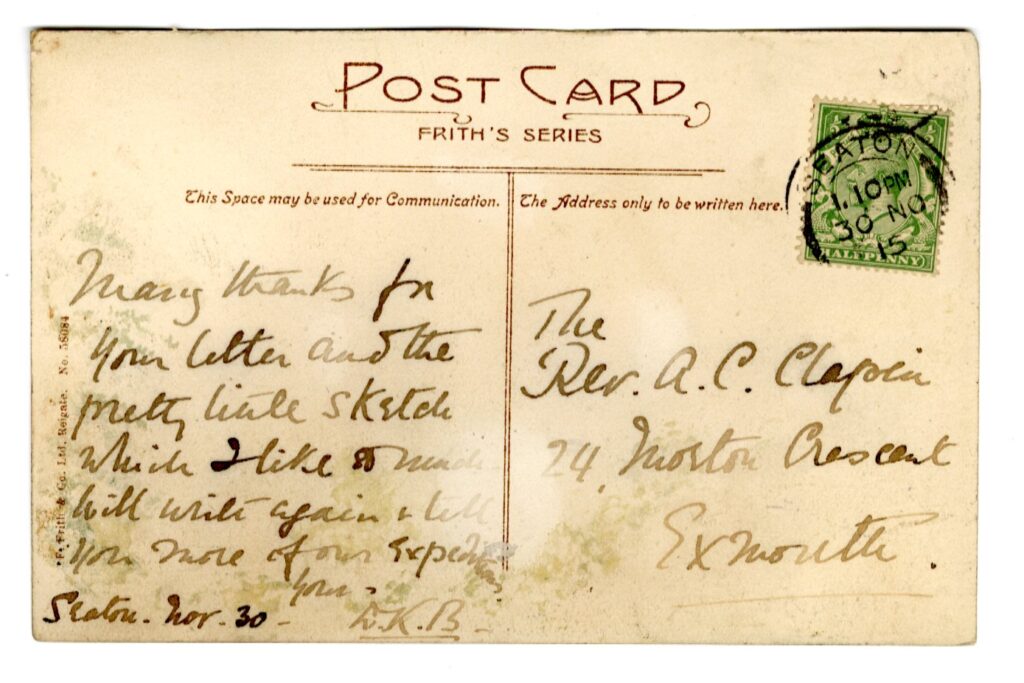 POST CARD
FRITH'S SERIES
This Space may be used for Communication.
The Address only to be written here.
SEATON
1.10 PM
30 NO
15
HALFPENNY
Many thanks for
your letter and the
pretty little sketch
which I like so much
will write again & tell
you more of our Expeditions
Yours
D.K.B
Seaton. Nov. 30
The
Rev. A. C. Clapin
24, Morton Crescent
Exmouth.
F. Frith & Co. Ltd. Reigate. No. 58084